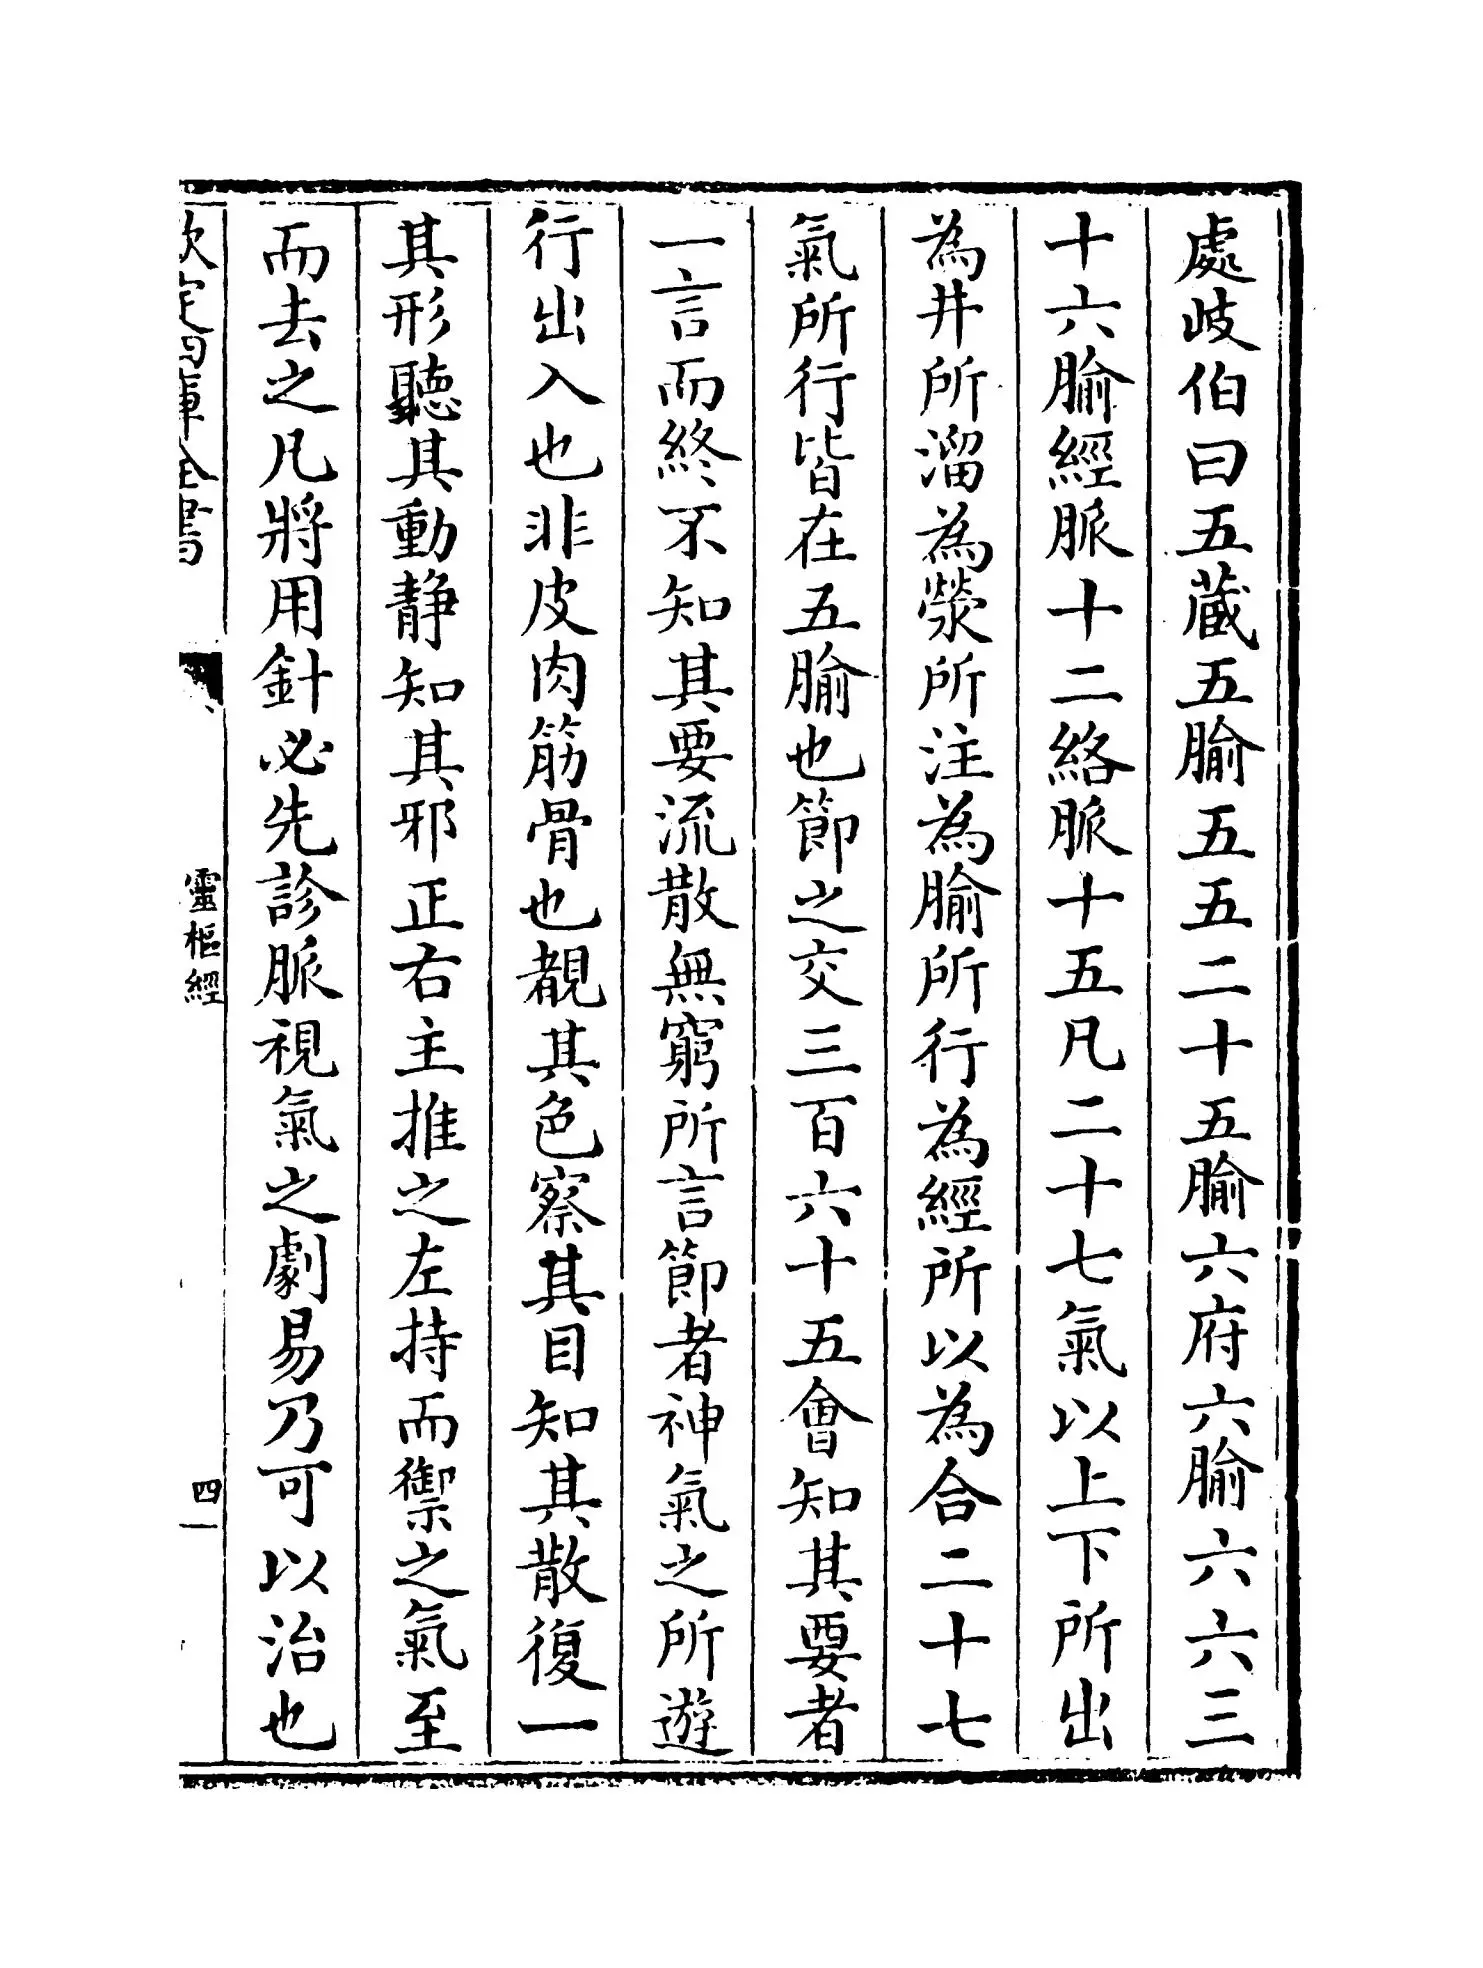 處歧伯曰五藏五腧五五二十五腧六府六腧六六三
十六腧經脈十二絡脈十五凡二十七氣以上下所出
為井所溜為滎所注為腧所行為經所以為合二十七
氣所行皆在五腧也節之交三百六十五會知其要者
一言而終不知其要流散無窮所言節者神氣之所遊
行出入也非皮肉筋骨也覩其色察其目知其散復一
其形聽其動静知其邪正右主推之左持而禦之氣至
而去之凡將用針必先診脈視氣之劇易乃可以治也
欽定四庫全書
靈樞經
四